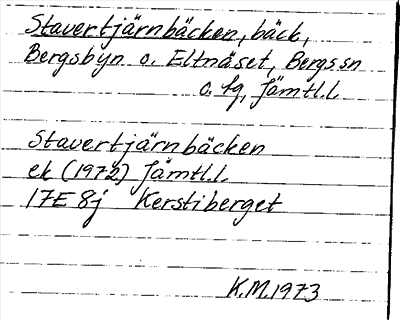 Stavertjärnbäcken, bäck,
Bergsbyn o. Eltnäset, Bergs sn
o. tg, Jämtl.l.
Stavertjärnbäcken
ek (1972) Jämtl.l.
17E 8j Kerstiberget
K.M.1973